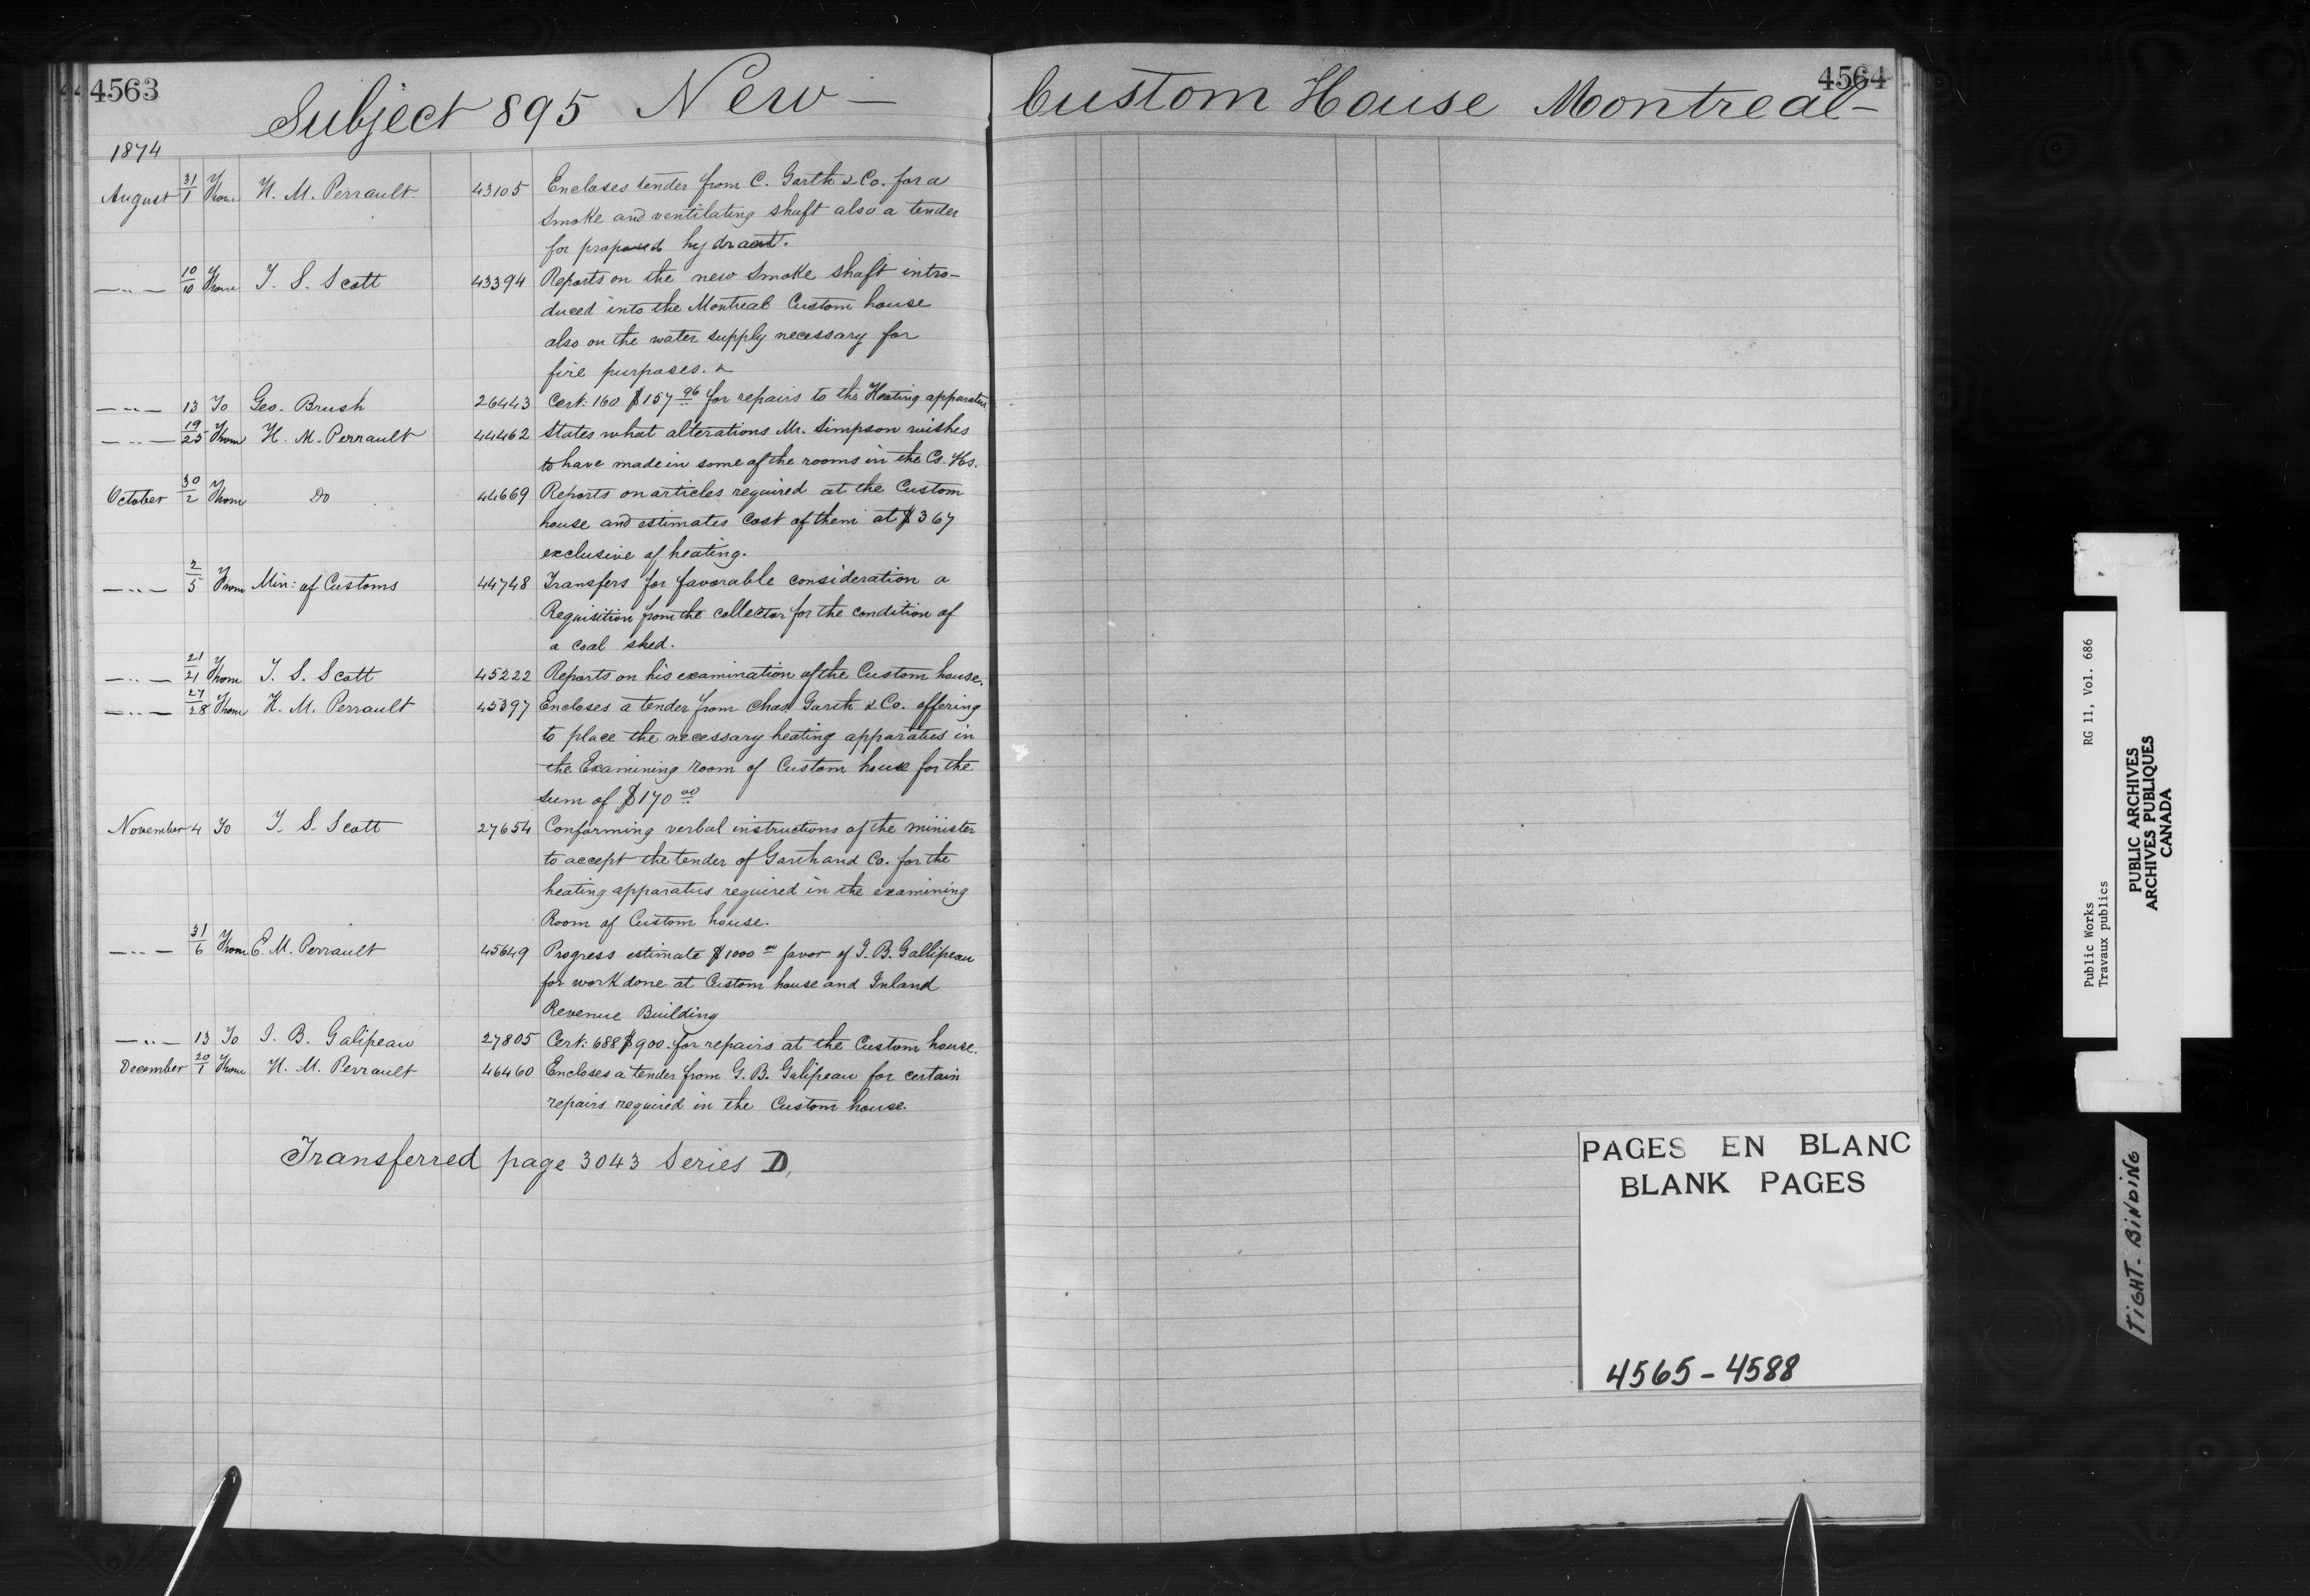 4563
Subject 895 New —
1874
August 31/1 From H. M. Perrault. 43105 Encloses tender from C. Garth & Co. for a
smoke and ventilating shaft also a tender
for proposed hydrant.
—..— 10/10 From T. S. Scott 43394 Reports on the new smoke shaft intro-
duced into the Montreal Custom house
also on the water supply necessary for
fire purposes.
—..— 13 To Geo. Brush 26443 Cert: 160 $157 96 for repairs to the Heating apparatus
—..— 19/25 From H. M. Perrault 44462 States what alterations Mr. Simpson wishes
to have made in some of the rooms in the Cs. Hs.
October 30/2 From Do 44669 Reports on articles required at the Custom
house and estimates cost of them at $367
exclusive of heating.
—..— 2/5 From Min: of Customs 44748 Transfers for favorable consideration a
Requisition from the collector for the condition of
a coal shed.
—..— 21/21 From T. S. Scott 45222 Reports on his examination of the Custom house.
—..— 27/28 From H. M. Perrault 45397 Encloses a tender from Chas. Garth & Co. offering
to place the necessary heating apparatus in
the Examining room of Custom house for the
sum of $170 00
November 4 To T. S. Scott 27654 Conforming verbal instructions of the minister
to accept the tender of Garth and Co. for the
heating apparatus required in the examining
Room of Custom house.
—..— 31/6 From E. M. Perrault 45649 Progress estimate $1000 00 favor of J. B. Gallipeau
for work done at Custom house and Inland
Revenue Building
—..— 13 To J. B. Galipeau 27805 Cert: 688 $900. for repairs at the Custom house.
December 20/1 From H. M. Perrault 46460 Encloses a tender from G. B. Galipeau for certain
repairs required in the Custom house.
Transferred page 3043 Series D,
4564
Custom House Montreal —
PAGES EN BLANC
BLANK PAGES
4565 - 4588
Public Works RG 11, Vol. 686
Travaux publics
PUBLIC ARCHIVES
ARCHIVES PUBLIQUES
CANADA
TIGHT BINDING